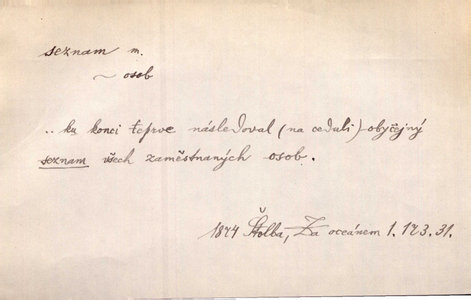 seznam m.
~ osob
.. ku konci teprve následoval (na ceduli) obyčejný
seznam všech zaměstnaných osob.
1874 Štolba, Za oceánem 1. 173. 31.